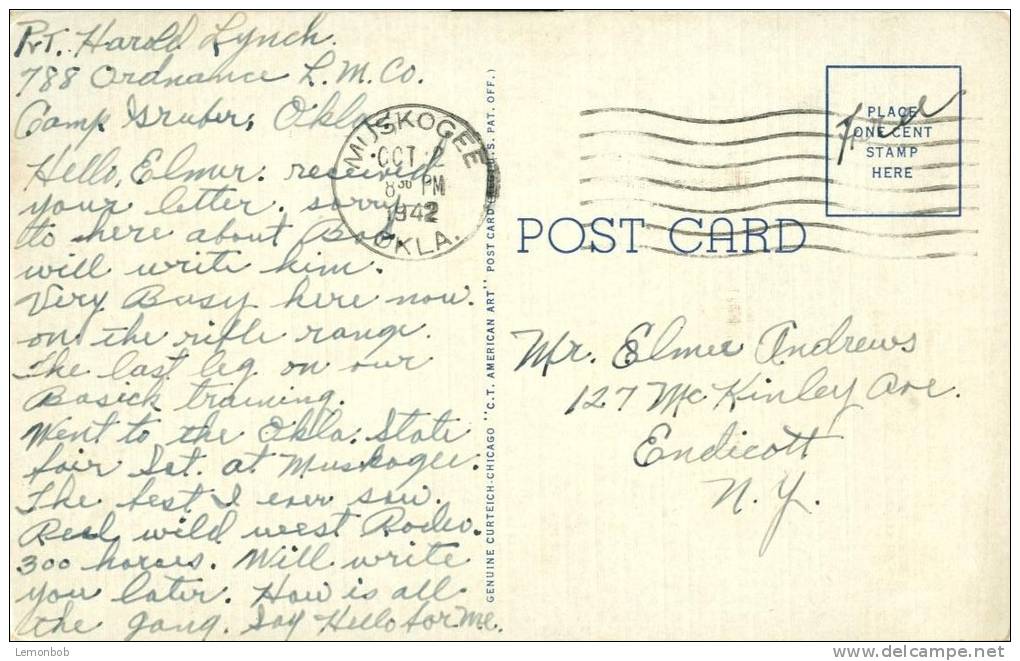 Pvt. Harold Lynch.
788 Ordnance L.M.Co.
Camp Gruber, Okla.
Hello, Elmer. received
your letter. sorry
to here about
will write him.
Very Busy here now.
on the rifle range.
The last leg on our
Basick training.
Went to the Okla. State
fair Sat. at Muskogee.
The best I ever saw.
Real wild west Rodeo.
300 horses. Will write
you later. How is all
the gang. Say Hello for Me.
MUSKOGEE
OCT 2
8 30 PM
1942
OKLA.
GENUINE CURTEICH-CHICAGO "C.T. AMERICAN ART" POST CARD U.S. PAT. OFF.)
Free
PLACE
ONE CENT
STAMP
HERE
POST CARD
Mr. Elmer Andrews
127 McKinley Ave.
Endicott
N.Y.
Lemonbob
www.delcampe.net